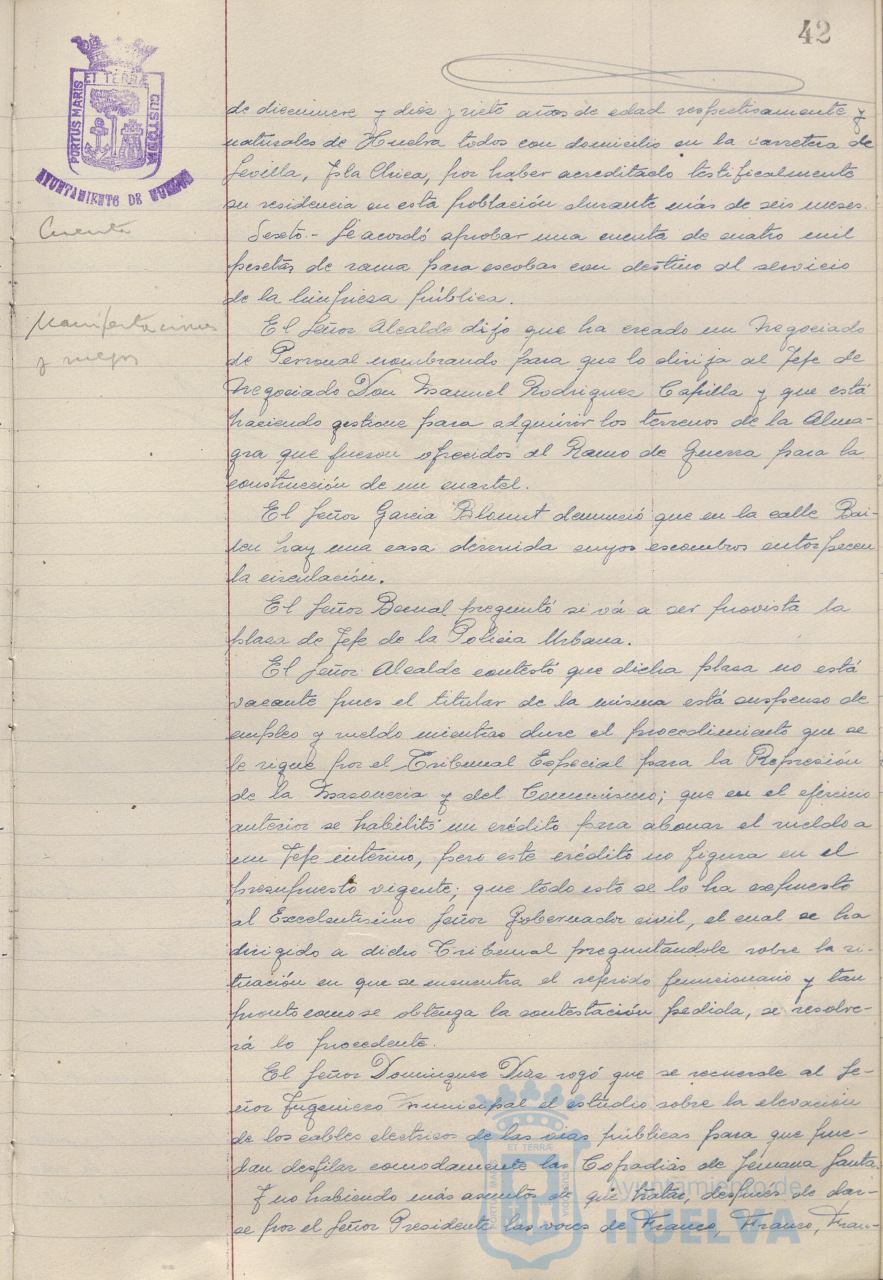 42
PORTUS MARIS ET TERRÆ CUSTODIA
AYUNTAMIENTO DE HUELVA
de diecinueve y diez y siete años de edad respectivamente y
naturales de Huelva todos con domicilio en la carretera de
Sevilla, Isla Chica, por haber acreditado testificalmente
su residencia en esta población durante más de seis meses.
Cuenta
Sexto.- Se acordó aprobar una cuenta de cuatro mil
pesetas de rama para escobas con destino al servicio
de la limpieza pública.
Manifestaciones
y ruegos
El Señor Alcalde dijo que ha creado un Negociado
de Personal nombrando para que lo dirija al Jefe de
Negociado Don Manuel Rodriguez Capilla y que está
haciendo gestione para adquirir los terrenos de la Alma-
gra que fueron ofrecidos al Ramo de Guerra para la
construcción de un cuartel.
El Señor Garcia Blount denunció que en la calle Bai-
len hay una casa derruida cuyos escombros entorpecen
la circulación.
El Señor Bernal preguntó si vá a ser provista la
plaza de Jefe de la Policia Urbana.
El Señor Alcalde contestó que dicha plaza no está
vacante pues el titular de la misma está suspenso de
empleo y sueldo mientras dure el procedimiento que se
le sigue por el Tribunal Especial para la Represión
de la Masoneria y del Comunismo; que en el ejercicio
anterior se habilitó un crédito para abonar el sueldo a
un Jefe interino, pero este crédito no figura en el
presupuesto vigente; que todo esto se lo ha expuesto
al Excelentisimo Señor Gobernador civil, el cual se ha
dirigido a dicho Tribunal preguntándole sobre la si-
tuación en que se encuentra el referido funcionario y tan
pronto como se obtenga la contestación pedida, se resolve-
rá lo procedente.
El Señor Dominguez Diaz rogó que se recuerde al Se-
ñor Ingeniero Municipal el estudio sobre la elevación
de los cables electricos de las vias públicas para que pue-
dan desfilar comodamente las Cofradias de Semana Santa.
Y no habiendo más asuntos de que tratar, después de dar-
se por el Señor Presidente las voces de Franco, Franco, Fran-
Ayuntamiento de
HUELVA